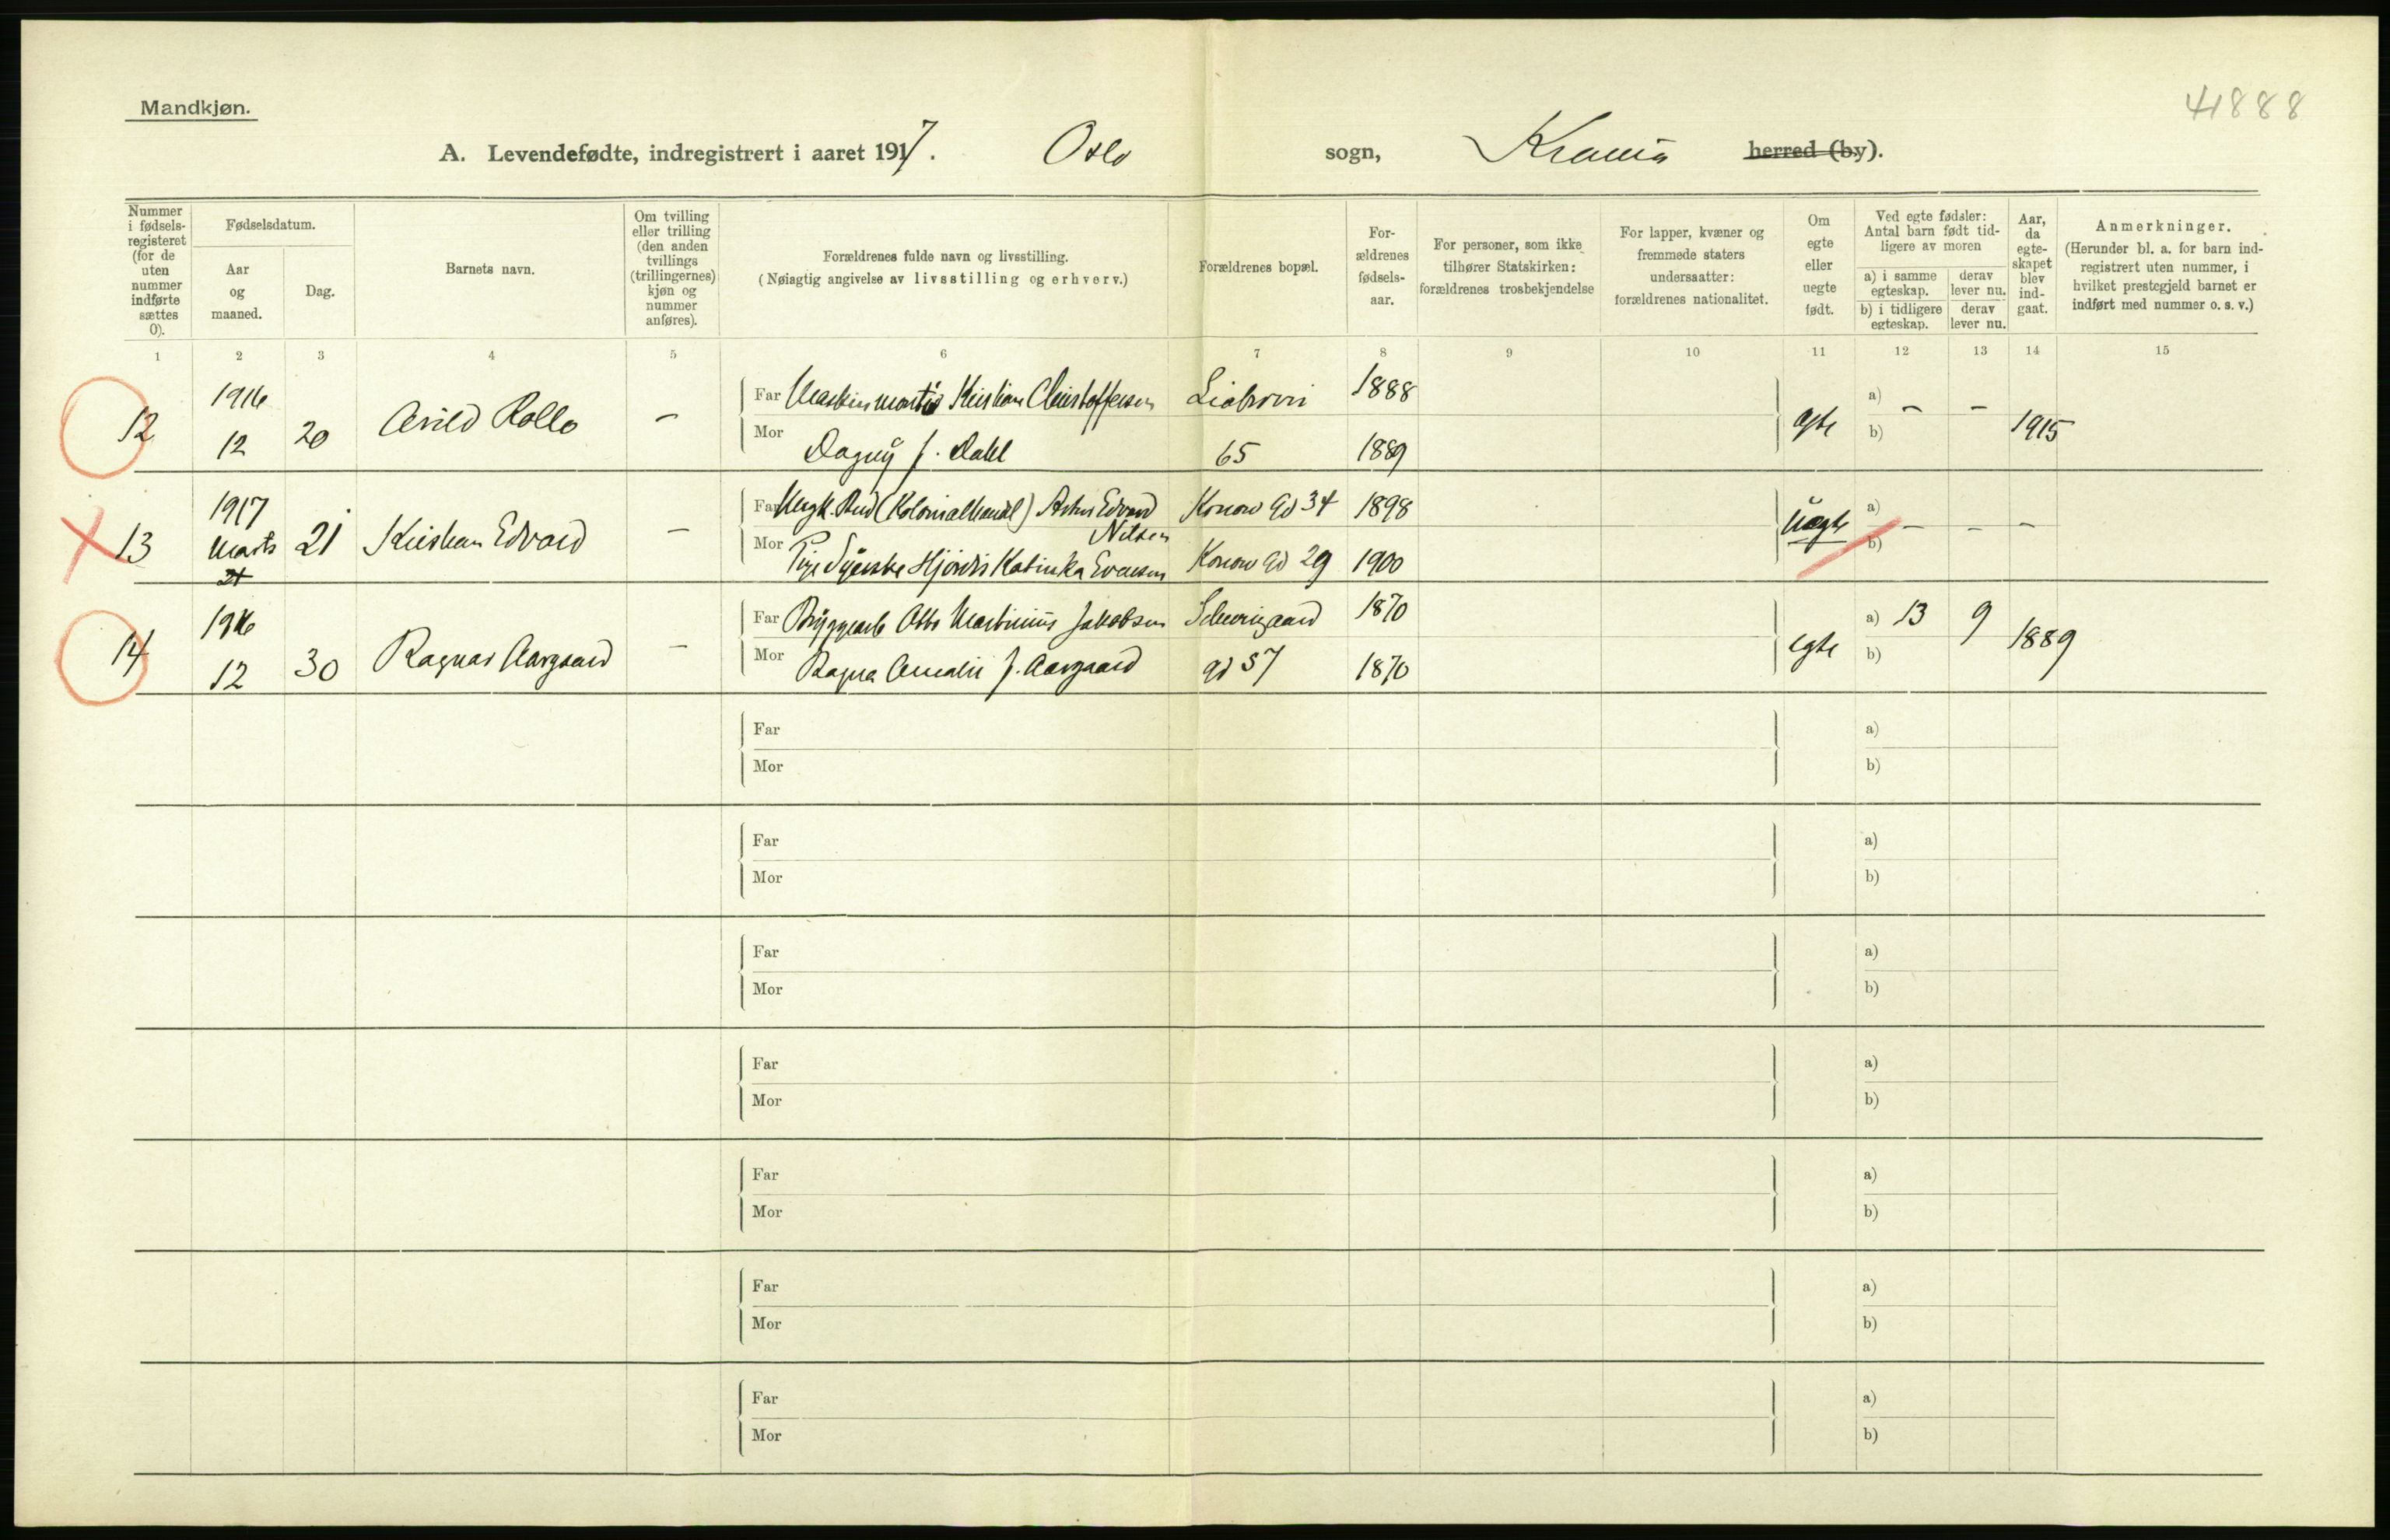 Mandkjøn.
41888
A. Levendefødte, indregistrert i aaret 1917. Oslo sogn, Krania herred (by).
Nummer i fødsels-registeret (for de uten nummer indførte sættes 0).
Fødselsdatum.
Aar og maaned.
Dag.
Barnets navn.
Om tvilling eller trilling (den anden tvillings (trillingernes) kjøn og nummer anføres).
Forældrenes fulde navn og livsstilling.
(Nøiagtig angivelse av livsstilling og erhverv.)
Forældrenes bopæl.
For-ældrenes fødsels-aar.
For personer, som ikke tilhører Statskirken: forældrenes trosbekjendelse
For lapper, kvæner og fremmede staters undersaatter: forældrenes nationalitet.
Om egte eller uegte født.
Ved egte fødsler: Antal barn født tid-ligere av moren
a) i samme egteskap.
derav lever nu.
b) i tidligere egteskap.
derav lever nu.
Aar, da egte-skapet blev ind-gaat.
Anmerkninger.
(Herunder bl. a. for barn ind-registrert uten nummer, i hvilket prestegjeld barnet er indført med nummer o. s. v.)
1 2 3 4 5 6 7 8 9 10 11 12 13 14 15
12 1916 12 20 Arild Rollo –
Far Maskinmontør Kristian Christoffersen Liabrovei 1888
Mor Dagny f. Dahl 65 1889
egte a) – – b) 1915
13 1917 Marts 21 21 Kristian Edvard –
Far Visergut Arthur Edvard Nilsen Konow gd 34 1898
Mor Pige Syerske Hjørdis Katinka Evensen Konow gd 29 1900
Uegte a) – – – b)
14 1916 12 30 Ragnar Aargaard –
Far Bryggearb Otto Martinius Jakobsen Schweigaard 1870
Mor Ragna Amalie f. Aargaard gd 57 1870
egte a) 13 9 b) 1889
Far a)
Mor b)
Far a)
Mor b)
Far a)
Mor b)
Far a)
Mor b)
Far a)
Mor b)
Far a)
Mor b)
Far a)
Mor b)